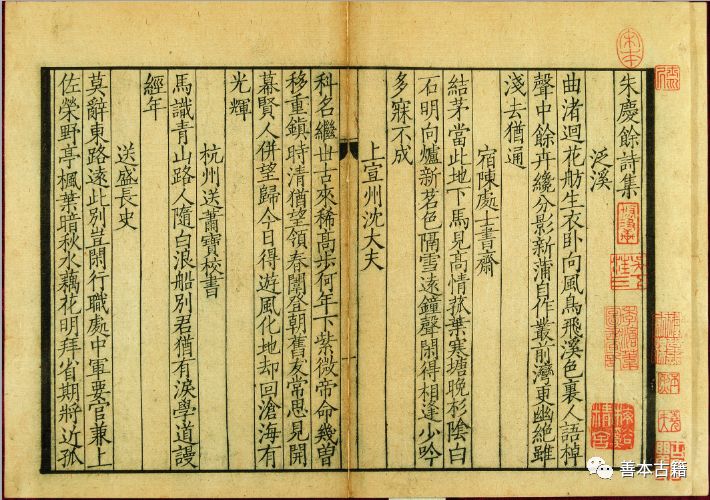 朱慶餘詩集
泛溪
曲渚迴花舫生衣卧向風鳥飛溪色裏人語棹
聲中餘卉纔分影新蒲自作叢前灣東幽絶雖
淺去猶通
宿陳處士書齋
結茅當此地下馬見高情菰葉寒塘晚杉陰白
石明向爐新茗色隔雪遠鐘聲閑得相逢少吟
多寐不成
上宣州沈大夫
科名繼世古來稀高步何年下紫微帝命幾曾
移重鎮時清猶望領春闈登朝舊友常思見開
幕賢人併望歸今日得遊風化地却回滄海有
光輝
杭州送蕭寶校書
馬識青山路人隨白浪船別君猶有淚學道謾
經年
送盛長史
莫辭東路遠此別豈閑行職處中軍要官兼上
佐榮野亭楓葉暗秋水藕花明拜省期將近孤
宋本
善本古籍